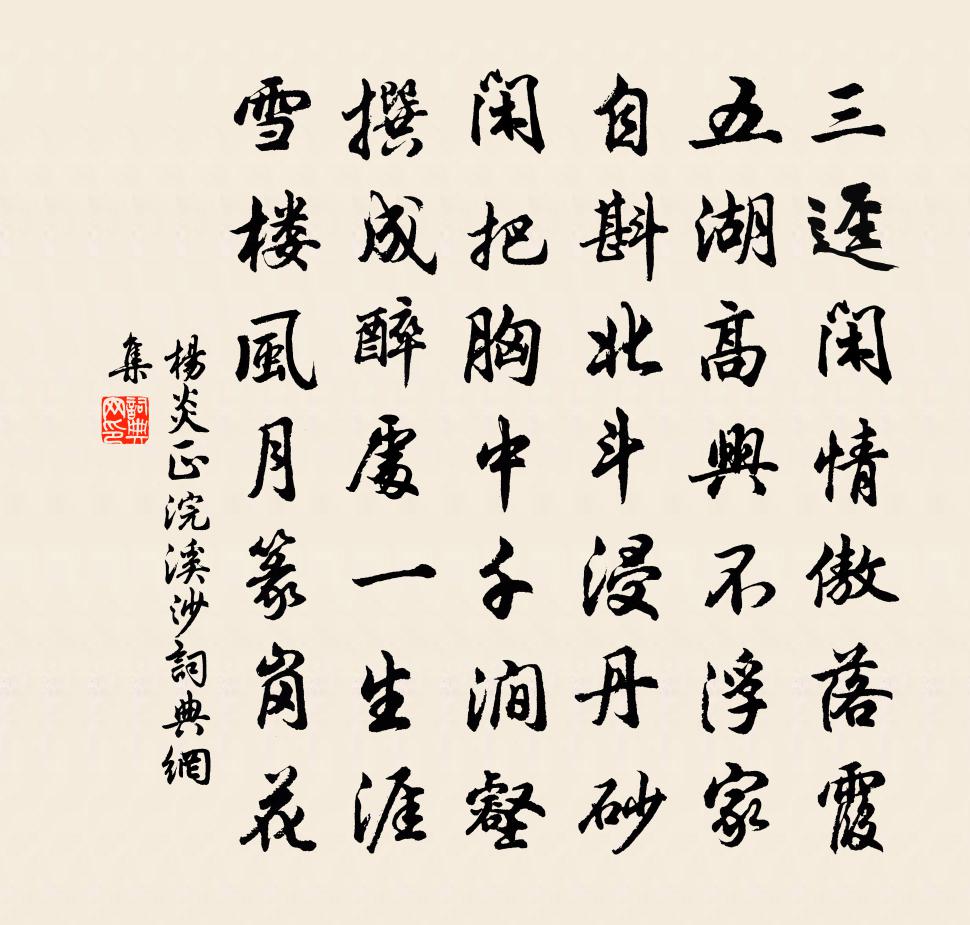 三逕閑情傲落霞
五湖高興不浮家
自斟北斗浸丹砂
閑把胸中千澗壑
撰成醉處一生涯
雪楼風月篆崗花
楊炎正浣溪沙詞典網
集
詞典
网印